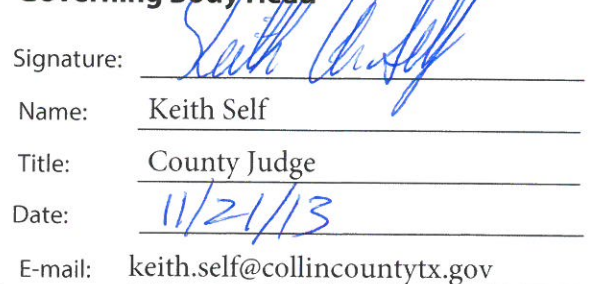 Governing Body Head
Signature: Keith Self
Name: Keith Self
Title: County Judge
Date: 11/21/13
E-mail: keith.self@collincountytx.gov